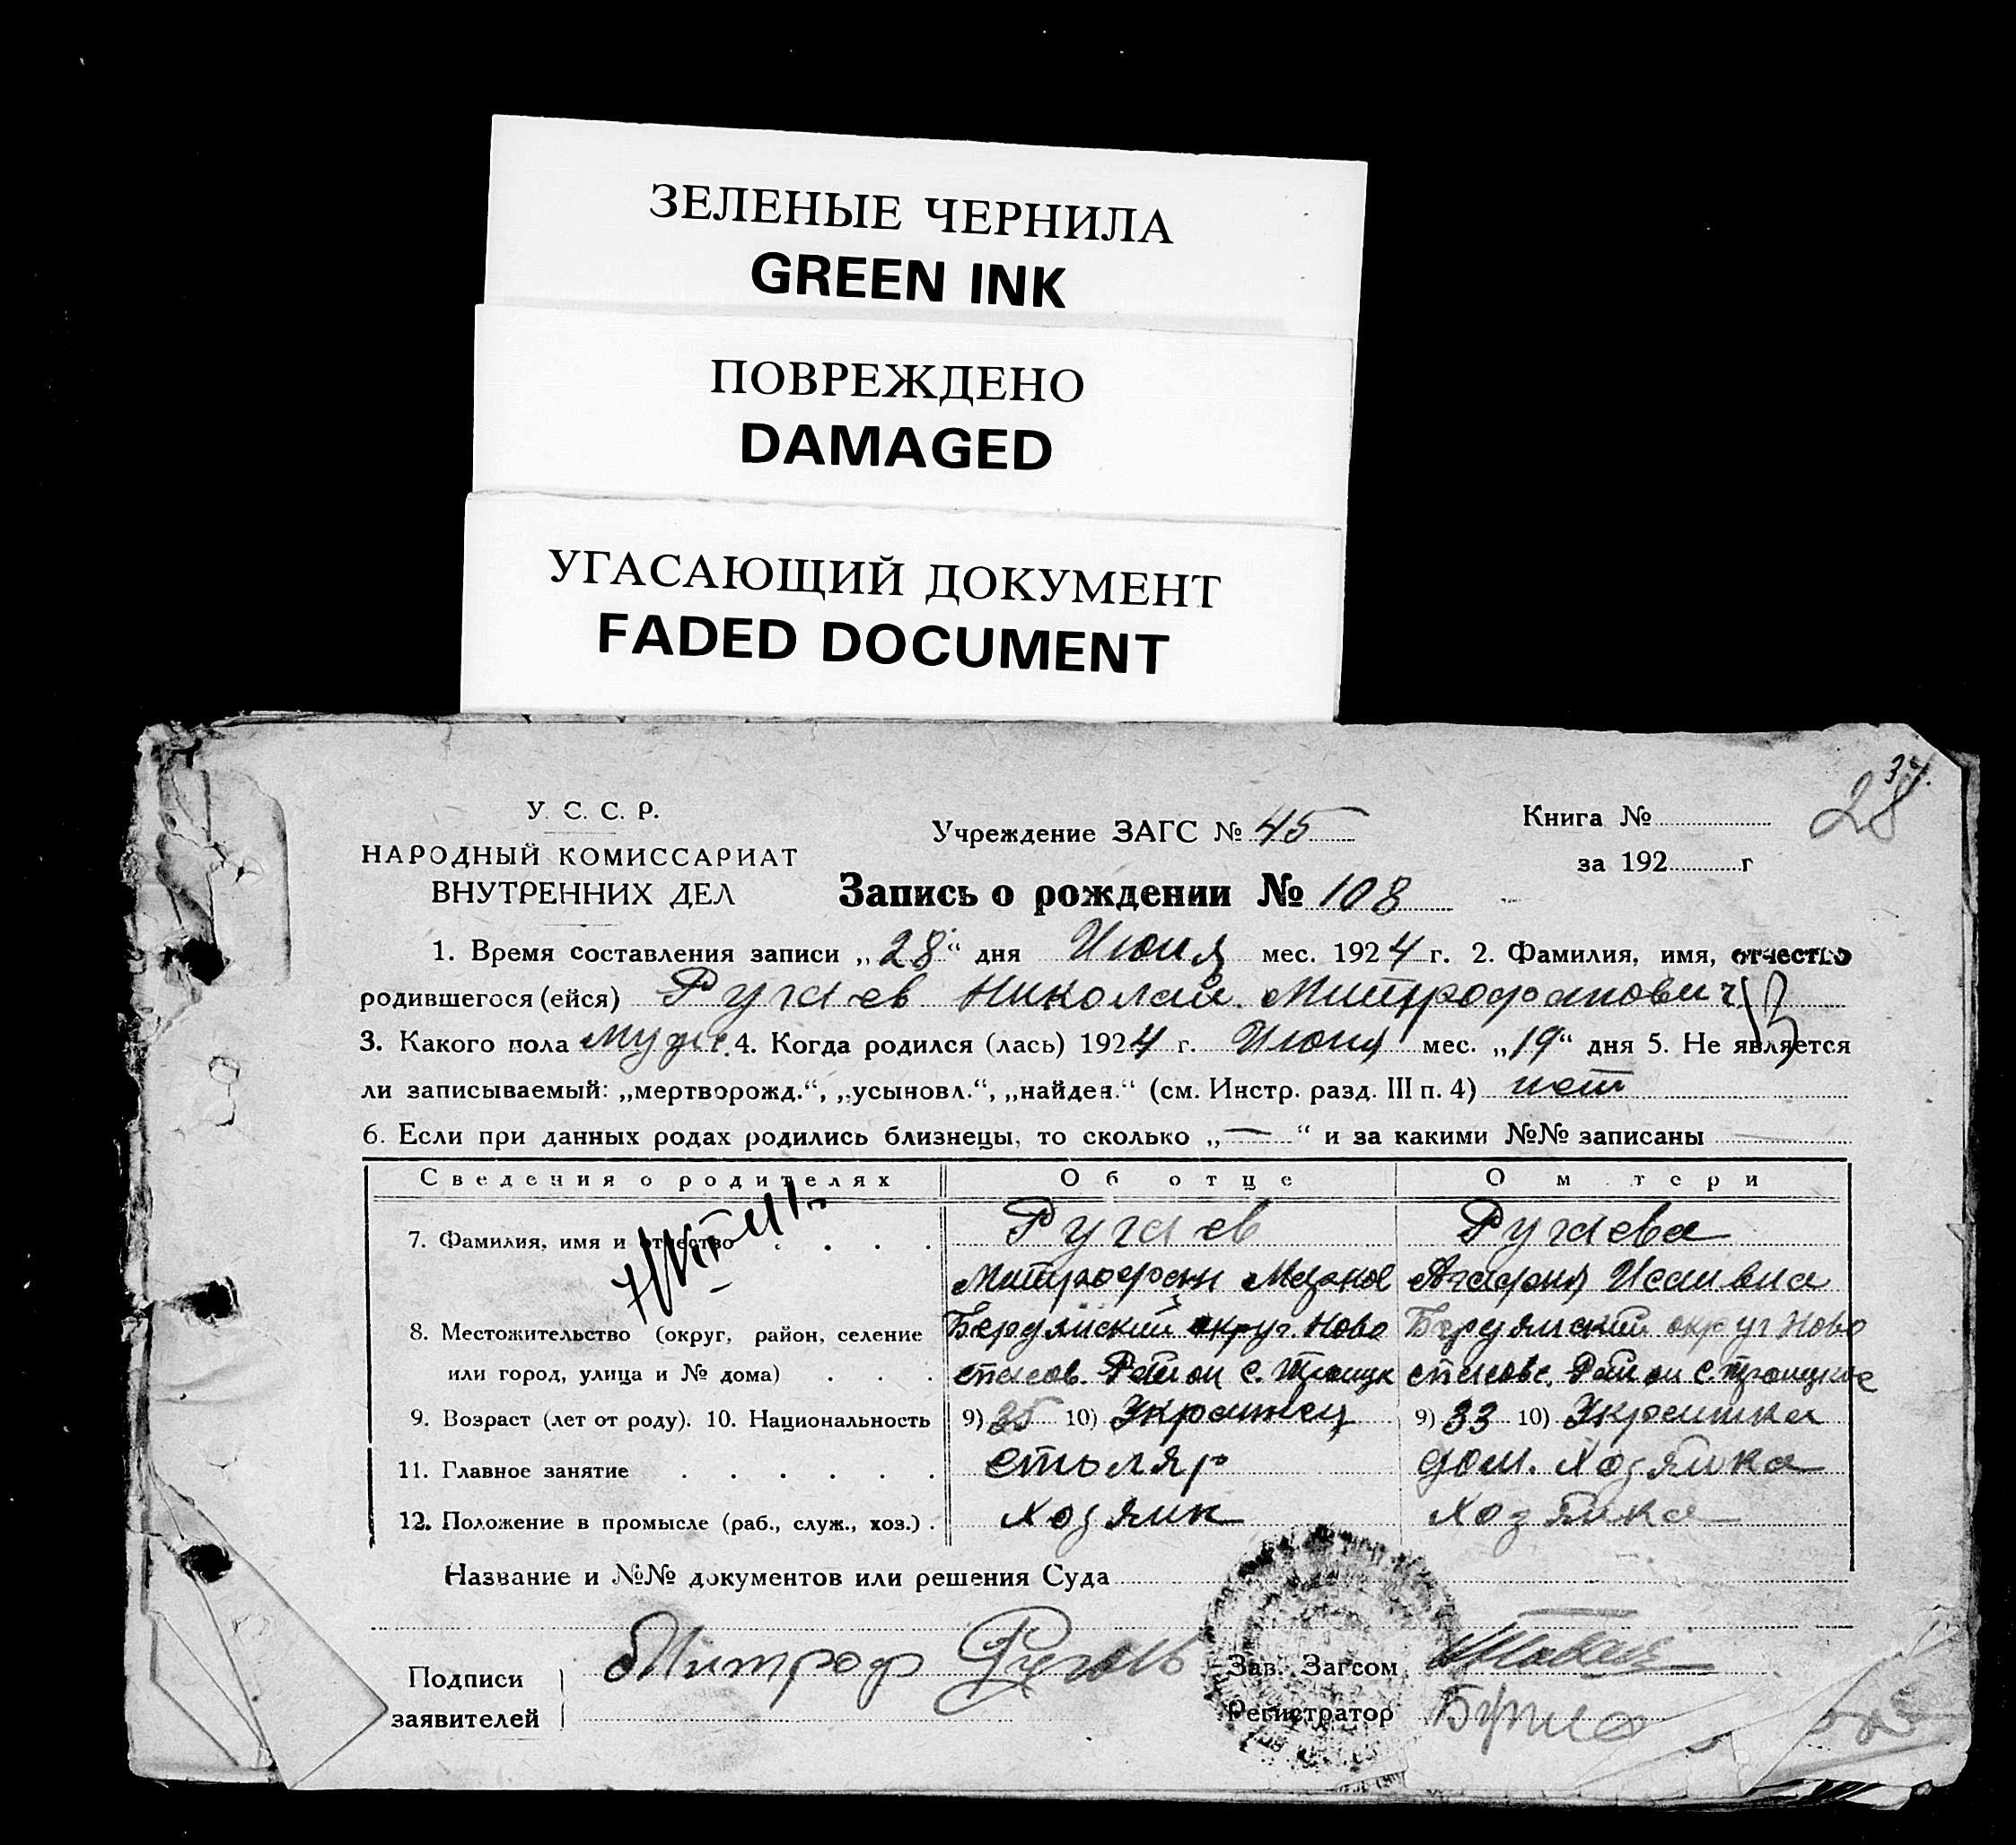 ЗЕЛЕНЫЕ ЧЕРНИЛА
GREEN INK
ПОВРЕЖДЕНО
DAMAGED
УГАСАЮЩИЙ ДОКУМЕНТ
FADED DOCUMENT
37.
28
У. С. С. Р.
НАРОДНЫЙ КОМИССАРИАТ
ВНУТРЕННИХ ДЕЛ
Учреждение ЗАГС № 45
Книга №
за 192 г
Запись о рождении № 108
1. Время составления записи „28“ дня Июня мес. 1924 г. 2. Фамилия, имя, отчество
родившегося (ейся) Ругаев Николай Митрофанович
3. Какого пола муж. 4. Когда родился (лась) 1924 г. Июня мес. „19“ дня 5. Не является
ли записываемый: „мертворожд.“, „усыновл.“, „найден.“ (см. Инстр. разд. III п. 4) нет
6. Если при данных родах родились близнецы, то сколько „—“ и за какими №№ записаны
Сведения о родителях Об отце О м тери
7. Фамилия, имя и отчество Ругаев Ругаева
Митрофан Агафия Исаивна
8. Местожительство (округ, район, селение Бердянский округ Ново Бердянский округ Ново
или город, улица и № дома) спасов. Район с. Троицк спасовс. Район с. Троицкое
9. Возраст (лет от роду). 10. Национальность 9) 35 10) Украинец 9) 33 10) Украинка
11. Главное занятие столяр дом. Хозяйка
12. Положение в промысле (раб., служ., хоз.) Хозяин Хозяйка
Название и №№ документов или решения Суда
Подписи
заявителей
Митроф
Зав. Загсом
Регистратор